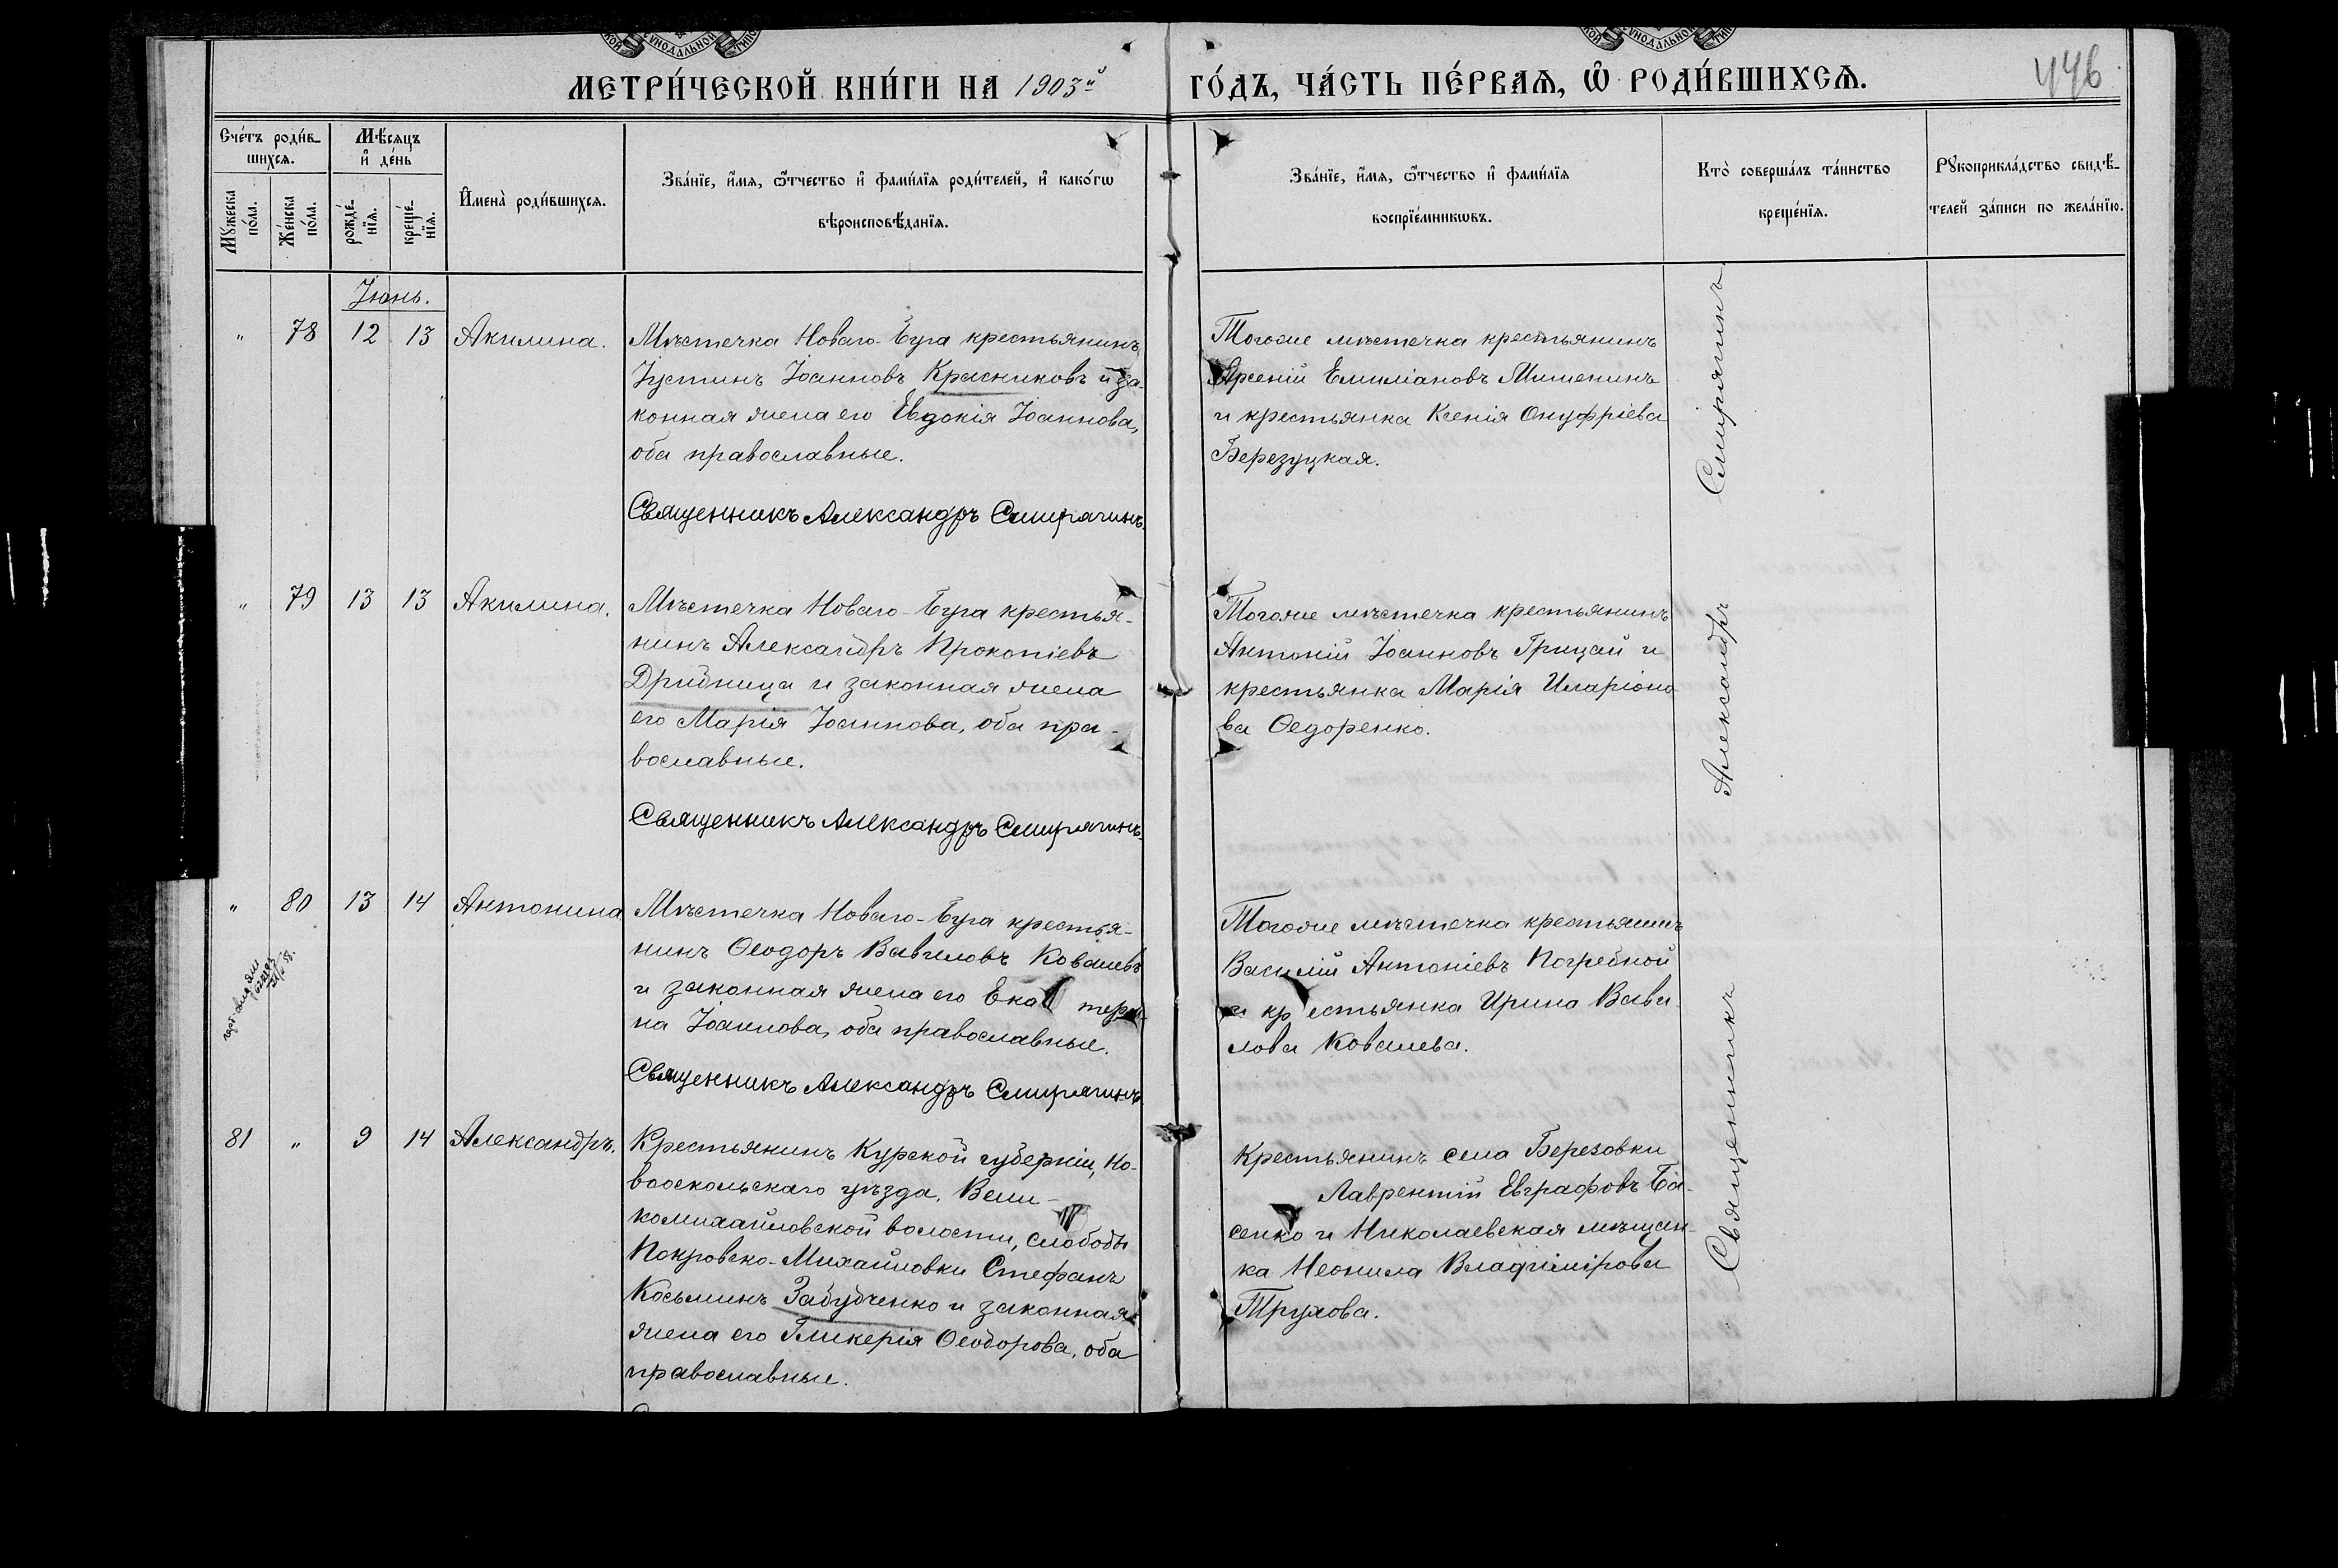 УНОДАЛЬНОЙ
УНОДАЛЬНОЙ
МЕТРИ́ЧЕСКОЙ КНИ́ГИ НА 1903й ГО́ДЪ, ЧА́СТЬ ПЕ́РВАѦ, Ѡ РОДИ́ВШИХСѦ.
446
Сче́тъ роди́в-
шихся.
Мѣ́сяцъ
и де́нь
Мꙋжеска
по́ла.
Же́нска
по́ла.
рожде́-
нїя.
креще́-
нїя.
И҆мена̀ роди́вшихся.
Зва́нїе, и҆́мя, ѻ҆́тчество и҆ фами́лїя роди́телей, и҆ како́гѡ
вѣроисповѣ́данїя.
Зва́нїе, и҆́мя, ѻ҆́тчество и҆ фами́лїя
воспрїе́мникѡвъ.
Кто̀ соверша́лъ та́инство
креще́нїя.
Рꙋкоприкла́дство свидѣ́-
телей за́писи по жела́нїю.
Іюнь.
" 78 12 13 Акилина.
Мѣстечка Новаго-Буга крестьянинъ
Іустинъ Іоанновъ Красниковъ и за-
конная жена его Евдокія Іоаннова,
оба православные.
Священникъ Александръ Смирягинъ.
Тогоже мѣстечка крестьянинъ
Арсеній Емиліановъ Мишенинъ
и крестьянка Ксенія Онуфріева
Березуцкая.
" 79 13 13 Акилина.
Мѣстечка Новаго-Буга крестья-
нинъ Александръ Прокопіевъ
Дрибница и законная жена
его Марія Іоаннова, оба пра-
вославные.
Священникъ Александръ Смирягинъ.
Тогоже мѣстечка крестьянинъ
Антоній Іоанновъ Грицай и
крестьянка Марія Иларіоно-
ва Ѳедоренко.
" 80 13 14 Антонина
Мѣстечка Новаго-Буга крестья-
нинъ Ѳеодоръ Вавиловъ Ковалевъ
и законная жена его Екатери-
на Іоаннова, оба православные.
Священникъ Александръ Смирягинъ.
Тогоже мѣстечка крестьянинъ
Василій Антоніевъ Погребной
и крестьянка Ирина Вави-
лова Ковалева.
81 " 9 14 Александръ.
Крестьянинъ Курской губерніи, Но-
вооскольскаго уѣзда, Вели-
комихайловской волости, слободы
Покровско-Михайловки Стефанъ
Косьминъ Забудченко и законная
жена его Гликерія Ѳеодорова, оба
православные.
Крестьянинъ села Березовки
Лаврентій Евграфовъ Ба-
сенко и Николаевская мѣщан-
ка Неонила Владимірова
Трухова.
Священникъ Александръ Смирягинъ